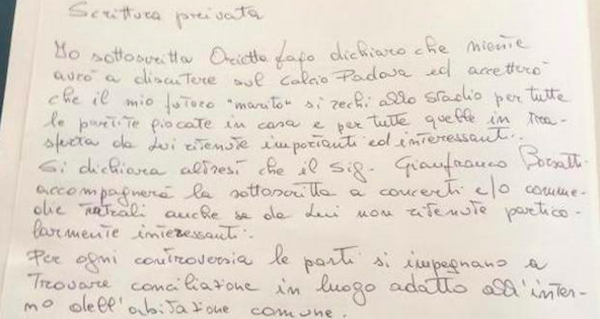 Scrittura privata
Io sottoscritta Orietta Fago dichiaro che niente
avrò a discutere sul Calcio Padova ed accetterò
che il mio futuro "marito" si rechi allo stadio per tutte
le partite giocate in casa e per tutte quelle in tra-
sferta da Lui ritenute importanti ed interessanti.
Si dichiara altresì che il Sig. Gianfranco Borsatti
accompagnerà la sottoscritta a concerti e/o comme-
die teatrali anche se da Lui non ritenute partico-
larmente interessanti.
Per ogni controversia le parti si impegnano a
trovare conciliazione in luogo adatto all'inter-
no dell'abitazione comune.